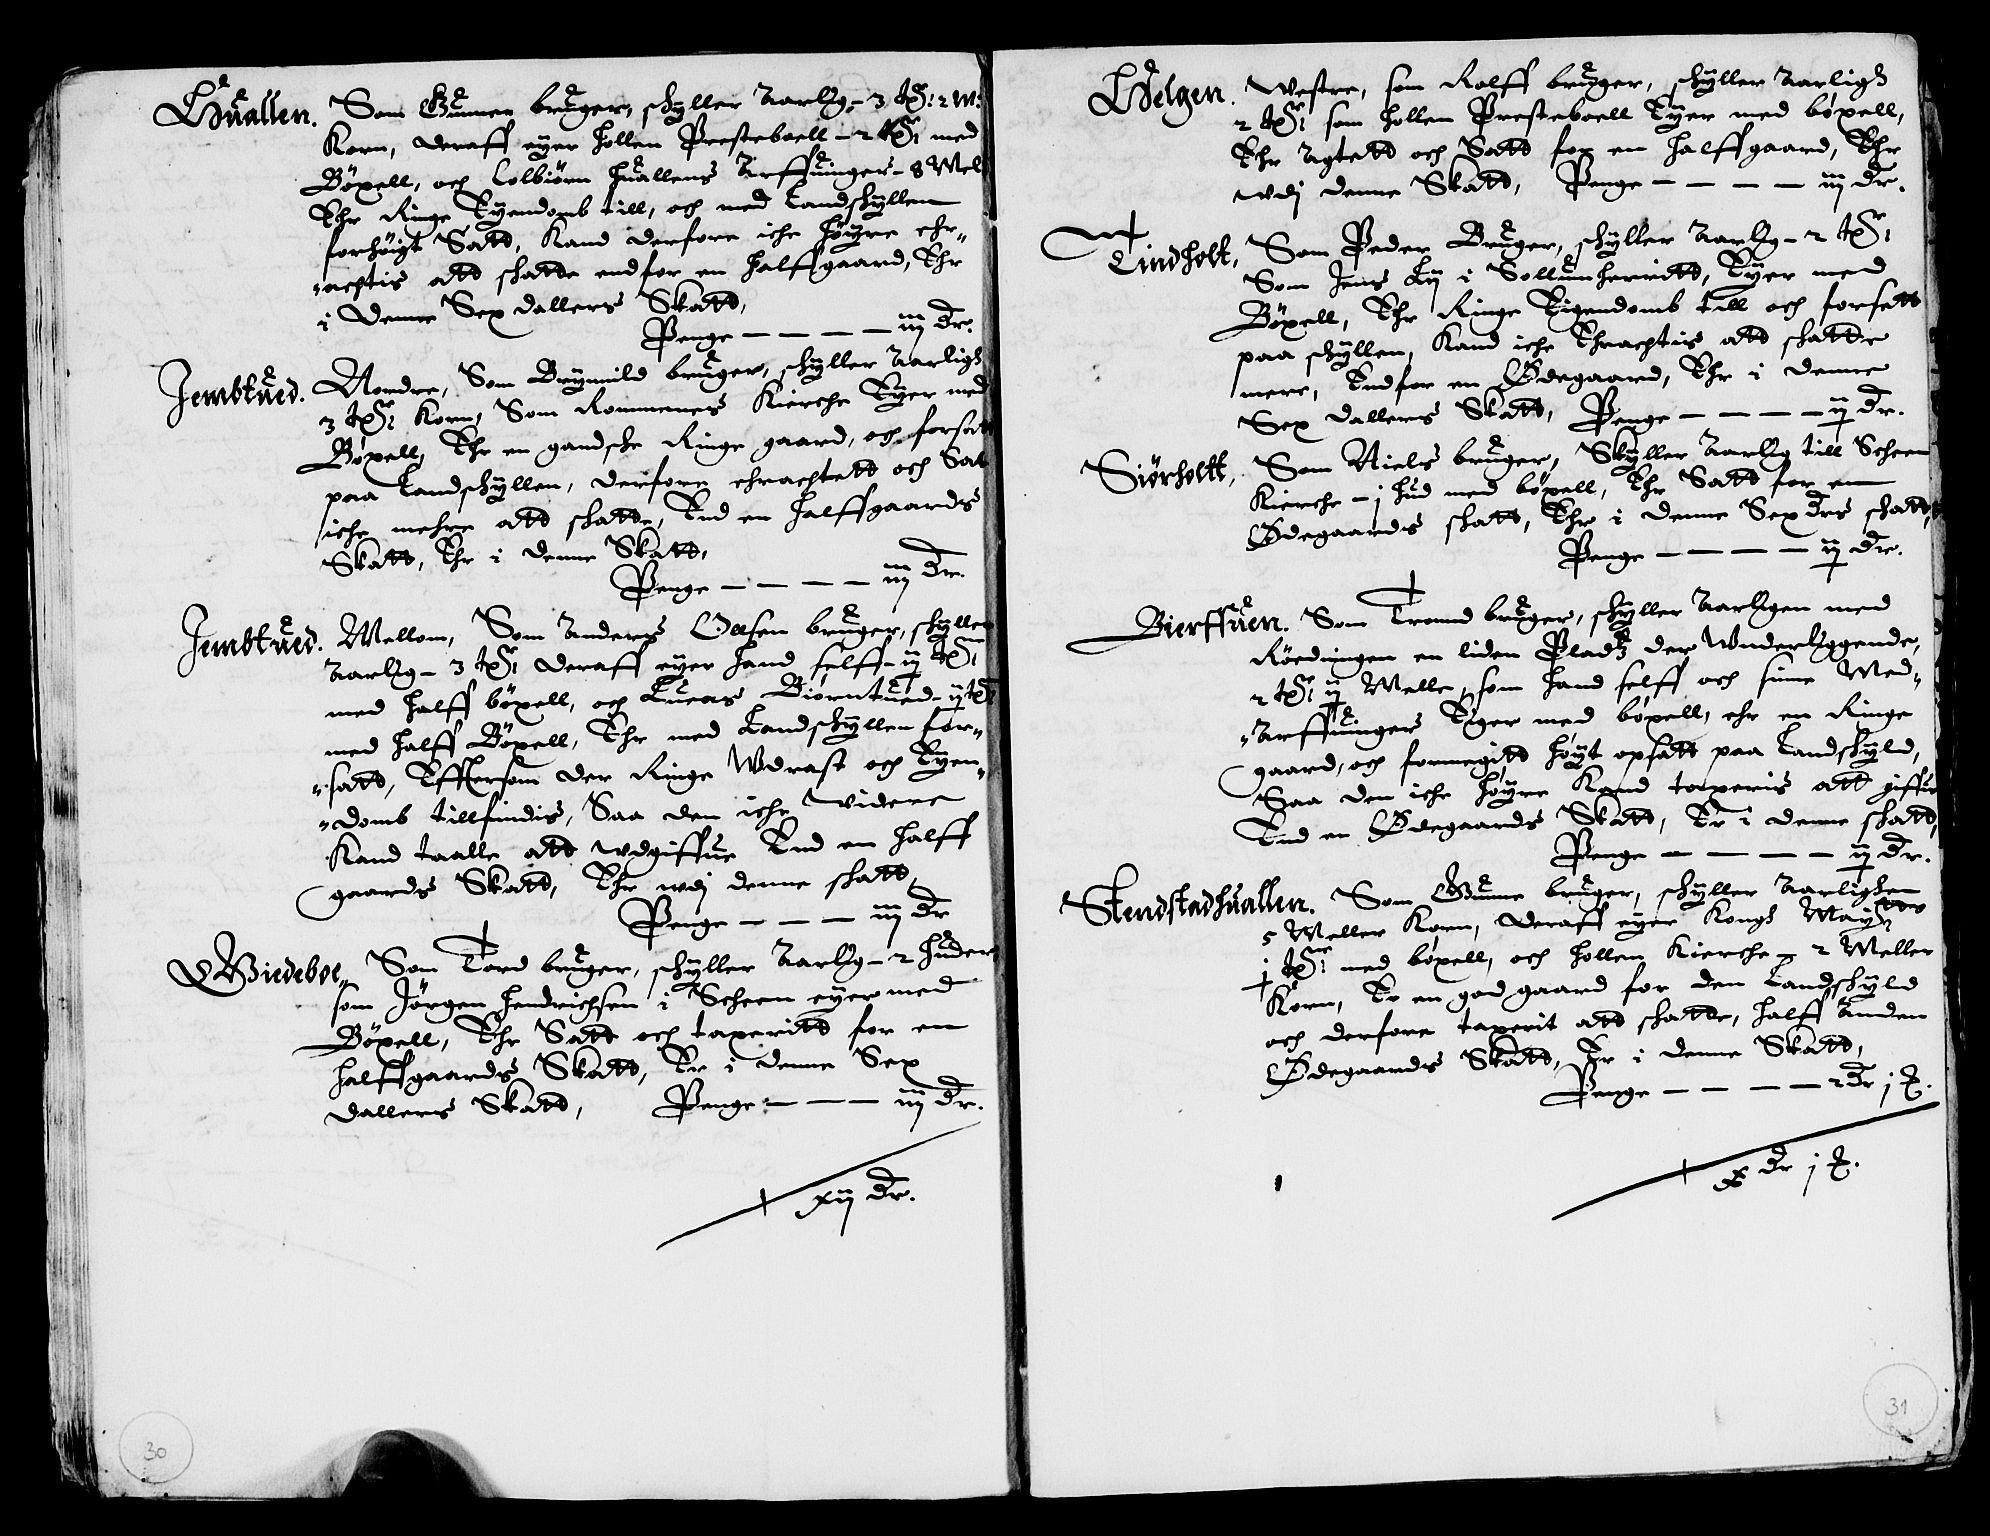 Huallen. Som Gunner bruger, schyller Aarlig – 3 tr: 2 M:
Korn, deraff eyer Hollen Presteboell – 2 tr med
Böxell, och Colbiörn Huallens Arffuinger – 8 Mel
Ehr Ringe Eyendomb till, och med Landschyllen
forhöigt Satt, Kand derfore iche Höyre ehr„
„achtis att schatte end for en halffgaard, Ehr
i Denne Sex dallers Skatt,
Penge – – – – iij dr.
Jembtued. Nordre, Som Brÿnild bruger, schyller Aarligh
3 tr Korn, Som Rommenes Kierche Eyer med
Böxell, Ehr en gandsche Ringe gaard, och forsatt
paa Landschyllen, derfore ehrachtett och Satt
iche mehre att schatte, End en halffgaards
Skatt, Ehr i denne Skatt,
Penge – – – – iij dr.
Jembtued. Mellom, Som Anders Ollsen bruger, schyller
Aarlig – 3 tr deraff eyer hand selff – ij tr
med halff böxell, och Lucas Biörntued – ij tr
med halff Böxell, Ehr med Landschyllen for„
„satt, Effttersom der Ringe Wdrast och Eyen„
„domb tillfindis, Saa den iche videre
Kand taalle att wdgiffue End en halff
gaards Skatt, Ehr wdj denne schatt,
Penge – – – iij dr
Wiedeboe„ Som Tord bruger, schyller Aarlig – 2 huder
som Jörgen Hendrichsen i Scheen eyer med
Böxell, Ehr Satt och taxeritt for en
halffgaards Skatt, Er i denne Sex
dallers Skatt, Penge – – – iij dr.
xij dr.
30
Helgen. Westre, som Rolff bruger, schyller Aarligh
2 tr som Hollen Presteboell Eyer med böxell,
Ehr Agtett och Satt for en halffgaard, Ehr
wdj denne Skatt, Penge – – – – iij dr.
Lindholt, Som Peder Bruger, schyller Aarlig – 2 tr
Som Jens Ly i Sollumherritt, Eyer med
Böxell, Ehr Ringe Eigendomb till och forsatt
paa schyllen, Kand iche Ehrachtis att schatte
mere, End for en Ödegaard, Ehr i denne
Sex dallers Skatt, Penge – – – – ij dr.
Siörholtt, Som Niels bruger, Skyller Aarlig till Scheen
Kierche – j hud med böxell, Ehr Satt for en
Ödegaards schatt, Ehr i denne Sex drs schatt,
Penge – – – – ij dr.
Bierffuen. Som Trond bruger, schyller Aarligen med
Röedningen en liden Pladz der Wnderliggende,
2 tr ij Melle, som hand selff och sine Med„
„Arffuinger Eiger med böxell, ehr en Ringe
gaard, och formegitt höyt opsatt paa Landschyld,
Saa den iche höyre Kand taxeris att giffue
End en Ödegaards Skatt, Er i denne schatt,
Penge – – – – ij dr.
Stendstadhuallen. Som Gunne bruger, schyller Aarlighen
5 Meller Korn, deraff eyer Kongh Maytts
j tr med böxell, och Hollen Kierche – 2 Meller
Korn, Er en god gaard for den Landschyld
och derfore taxerit att schatte, halff Anden
Ödegaards Skatt, Er i denne Skatt,
Penge – – – – 2 dr j
x dr j
31